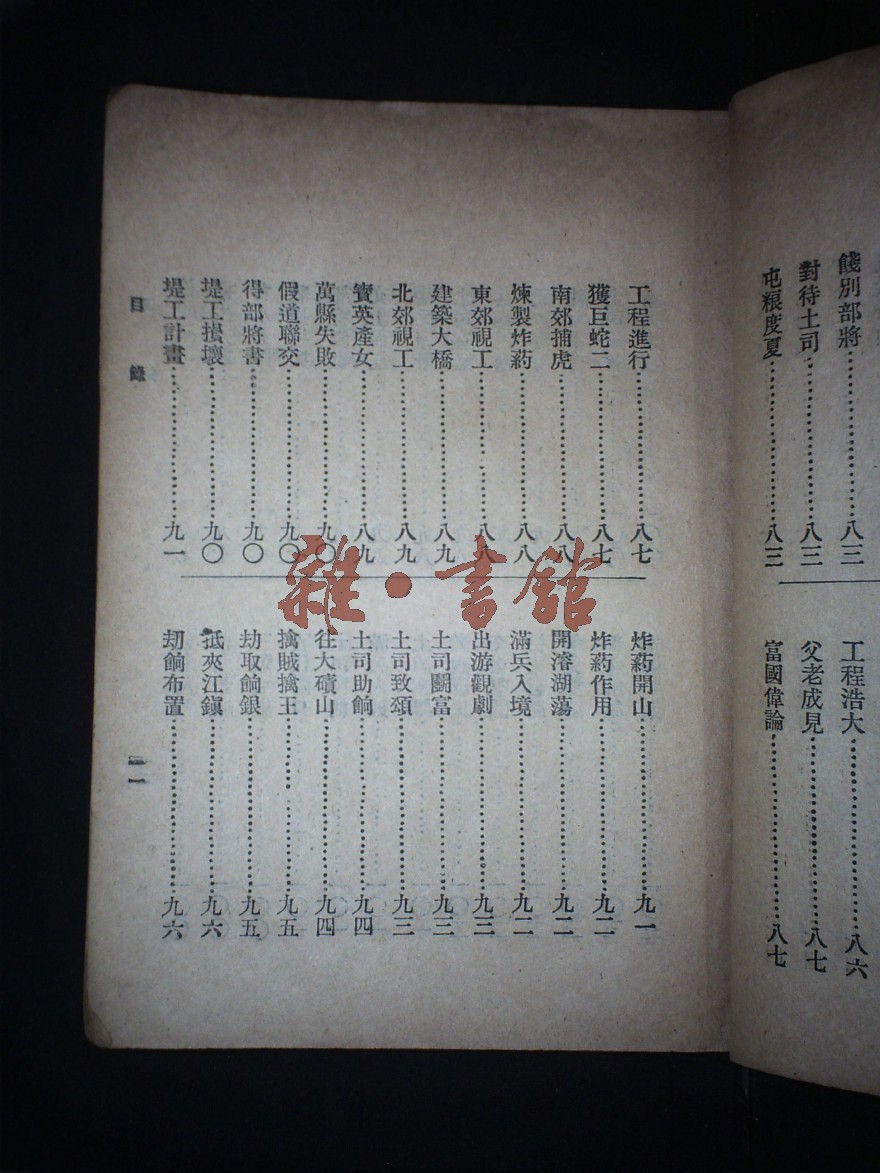 餞別部將……八三
對待土司……八三
屯粮度夏……八三
工程浩大……八六
父老成見……八七
富國偉論……八七
工程進行……八七
獲巨蛇二……八七
南郊捕虎……八八
煉製炸药……八八
東郊視工……八八
建築大橋……八九
北郊視工……八九
寶英產女……八九
萬縣失敗……九〇
假道聯交……九〇
得部將書……九〇
堤工損壞……九〇
堤工計畫……九一
炸药開山……九一
炸药作用……九二
開濬湖蕩……九二
滿兵入境……九二
出游觀劇……九三
土司鬭富……九三
土司致頌……九三
土司助餉……九四
往大磧山……九四
擒賊擒王……九五
劫取餉銀……九五
抵夾江鎮……九六
刧餉布置……九六
目錄
雜·書館